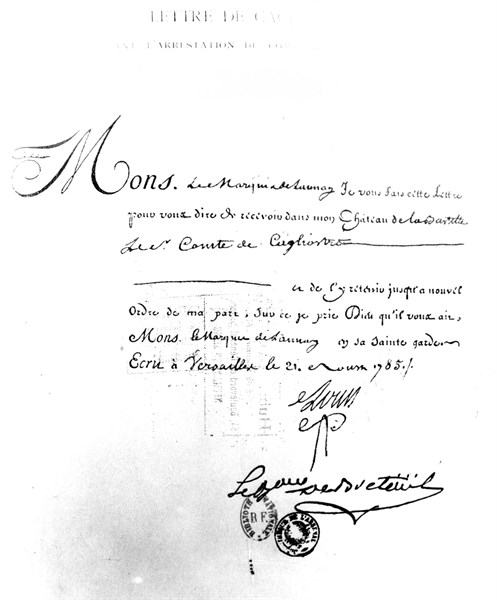 LETTRE DE CAC
ANT L'ARRESTATION DU COM
Mons. Le Marquis de Launay Je vous fais cette Lettre
pour vous dire de recevoir dans mon Château de la Bastille
Le Sr. Comte de Cagliostro
et de l'y retenir jusqu'a nouvel
Ordre de ma part, Sur ce je prie Dieu qu'il vous ait,
Mons. le Marquis de Launay en sa Sainte garde.
Ecrit à Versailles le 21. Aoust 1785./.
Louis
Le Baron de Breteuil
BIBLIOTH NATIONALE
R.F.
DE L'ARSENAL